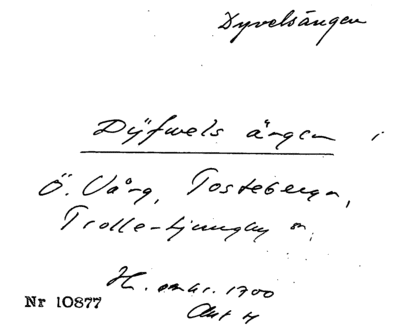 Dyvelsängen
Dÿfwels ängen i
Ö. Vång, Tosteberga,
Trolle-Ljungby sn.
H. omkr. 1700
Akt 4
Nr 10877